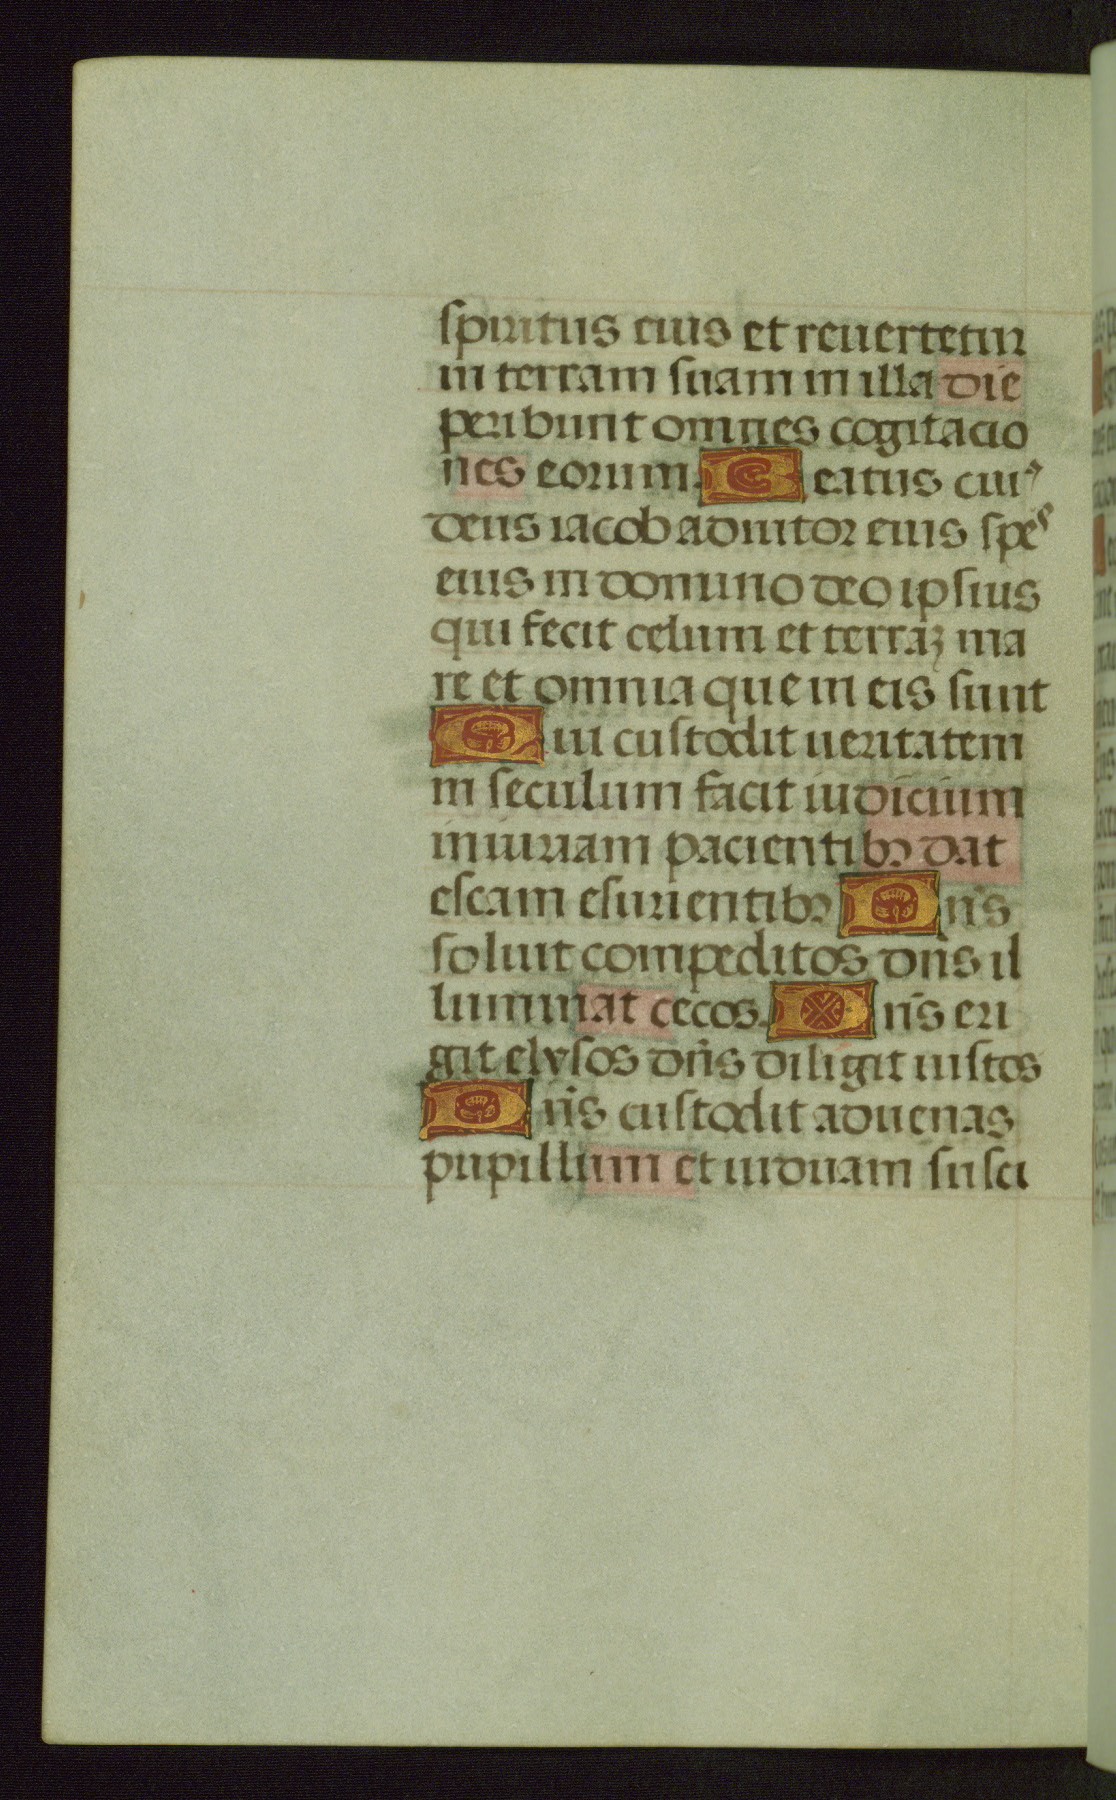 spiritus eius et reuertetur
in terram suam in illa die
peribunt omnes cogitacio
nes eorum. Beatus cui⁹
deus iacob adiutor eius spes
eius in domino deo ipsius
qui fecit celum et terraꝫ ma
re et omnia que in eis sunt
Qui custodit ueritatem
in seculum facit iudicium
iniuriam pacientibꝫ dat
escam esurientibꝫ Dn̄s
soluit compeditos dn̄s il
luminat cecos. Dn̄s eri
git elysos dn̄s diligit iustos
Dn̄s custodit aduenas
pupillum et uiduam susci